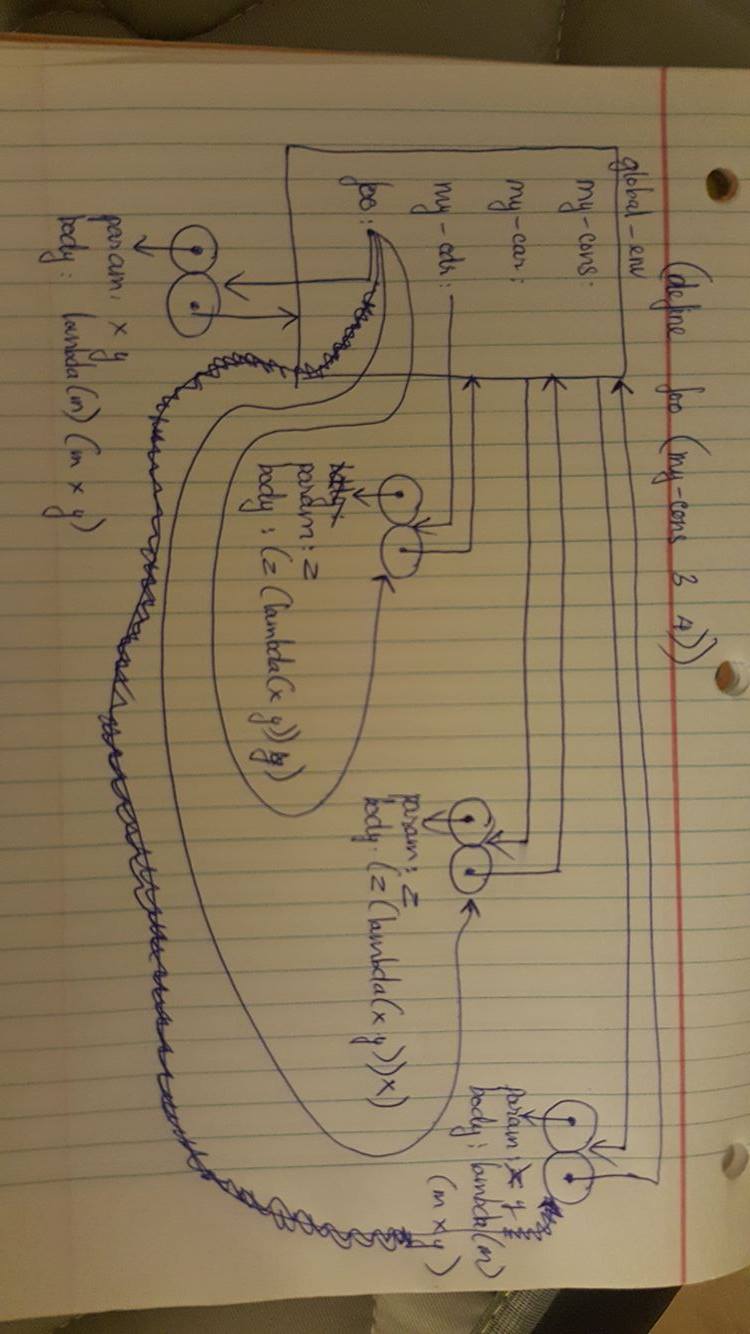 (define foo (my-cons 3 4))
global-env
my-cons:
my-car:
my-cdr:
foo:
param: x y
body: lambda (m)
(m x y)
param: z
body: (z (lambda (x y)) x)
param: z
body: (z (lambda (x y)) y)
param: x y
body: lambda (m) (m x y)